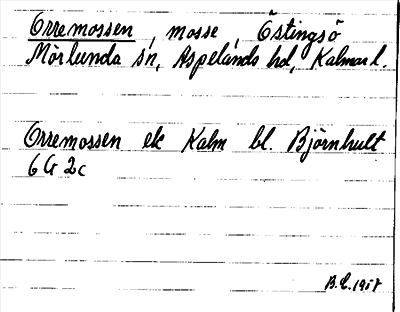 Orremossen, mosse, Östingsö
Mörlunda sn, Aspelands hd, Kalmar l.
Orremossen ek Kalm bl. Björnhult
6G 2c
B.E. 1958